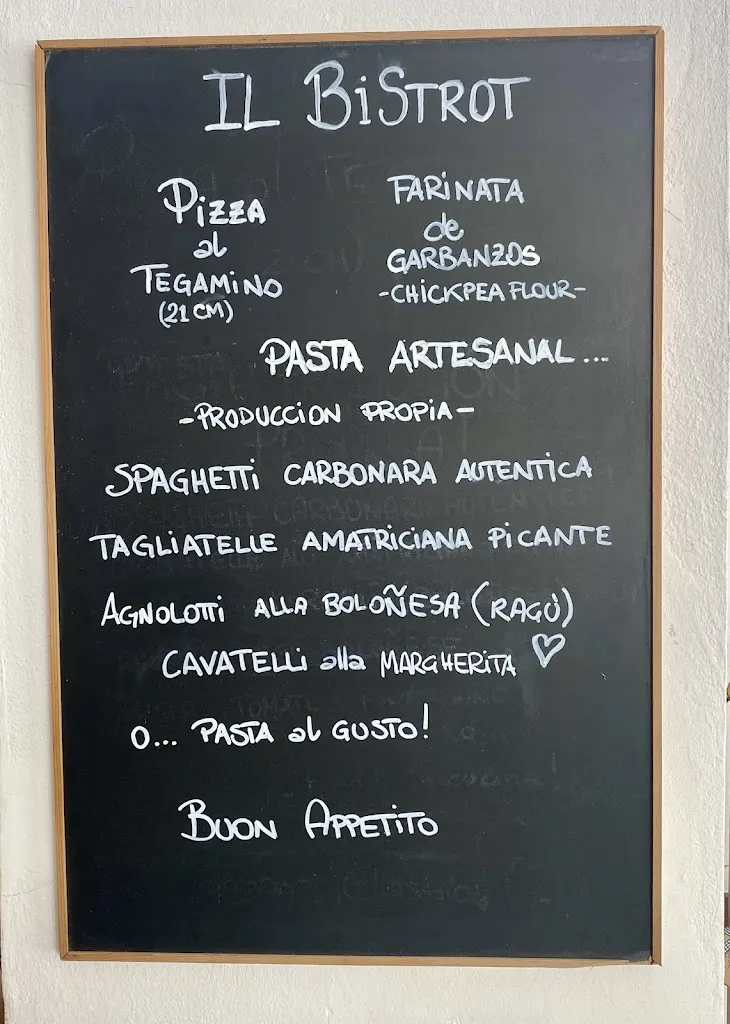 IL BiSTROT
PizzA
al
TEGAMINO
(21 CM)
FARiNATA
de
GARBANZOS
-CHiCKPEA FLOUR-
PASTA ARTESANAL...
-PRODUCCION PROPIA-
SPAGHETTi CARBONARA AUTENTiCA
TAGLiATELLE AMATRICIANA PiCANTE
AGNOLOTTi ALLA BOLOÑESA (RAGÙ)
CAVATELLi alla MARGHERiTA
O... PASTA al GUSTO!
BUON APPETiTO